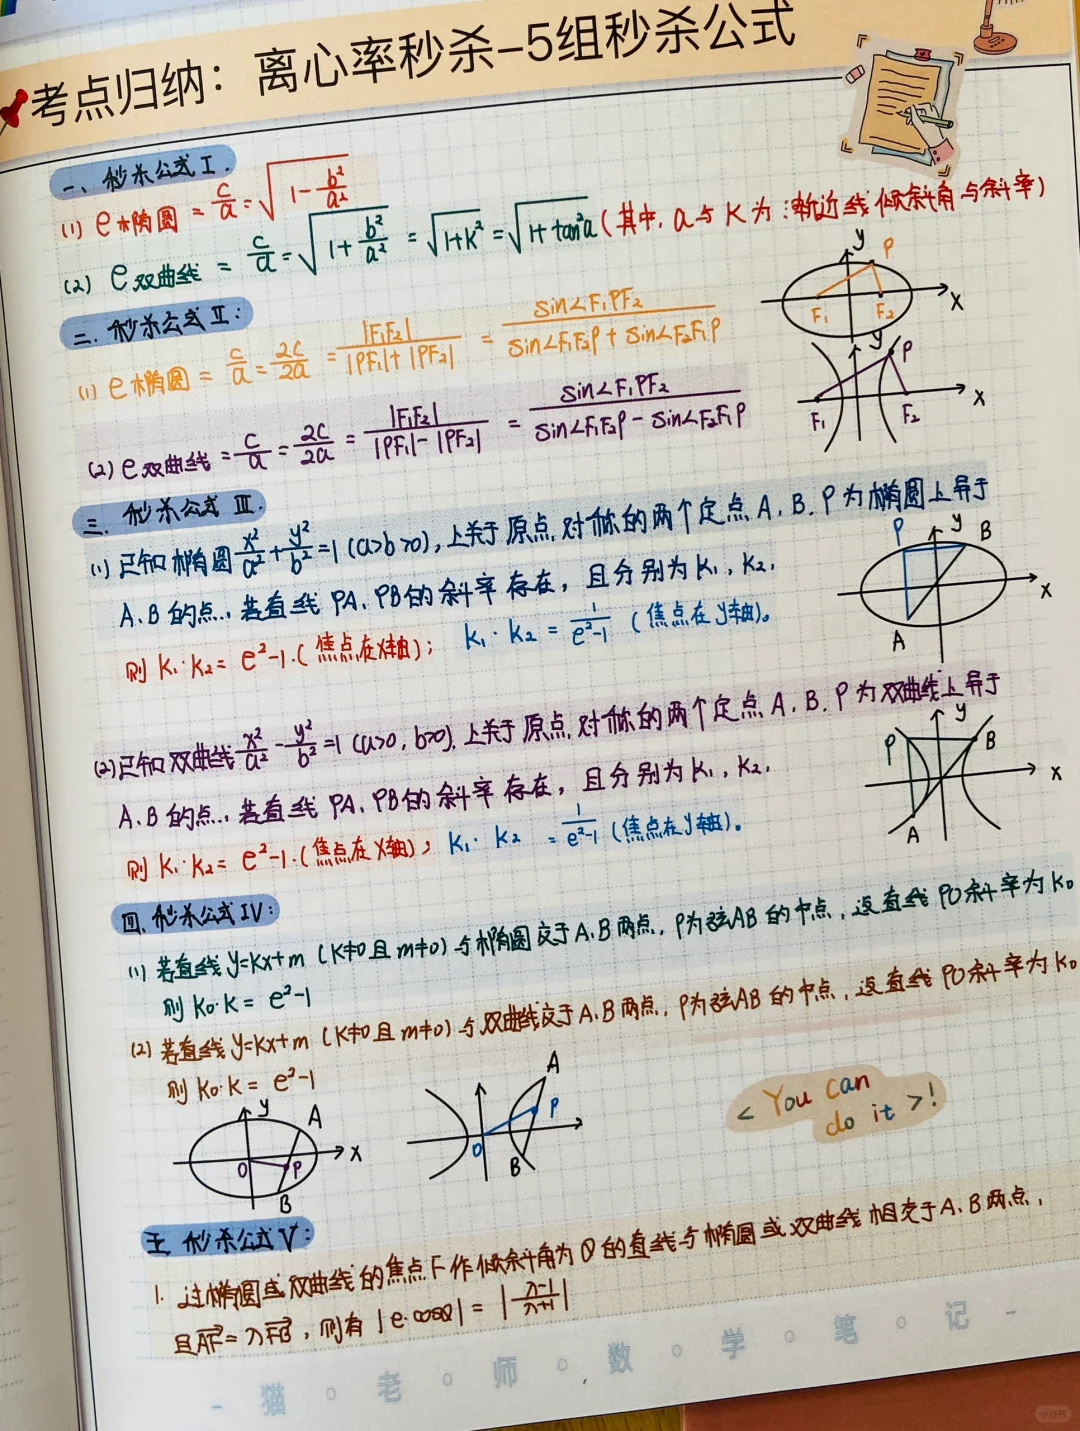 考点归纳：离心率秒杀-5组秒杀公式
一、秒杀公式 I.
(1) e椭圆 = c/a = √(1 - b²/a²)
(2) e双曲线 = c/a = √(1 + b²/a²) = √(1+k²) = √(1+tan²α) (其中, α与K为:渐近线倾斜角与斜率)
二. 秒杀公式 II:
(1) e椭圆 = c/a = 2c/2a = |F₁F₂|/(|PF₁|+|PF₂|) = sin∠F₁PF₂/(sin∠F₁F₂P + sin∠F₂F₁P)
y P F₁ F₂ x
(2) e双曲线 = c/a = 2c/2a = |F₁F₂|/(|PF₁|-|PF₂|) = sin∠F₁PF₂/(sin∠F₁F₂P - sin∠F₂F₁P)
y P F₁ F₂ x
三、秒杀公式 III.
(1) 已知椭圆x²/a²+y²/b²=1 (a>b>0), 上关于原点对称的两个定点A、B. P为椭圆上异于
A、B的点., 若直线PA、PB的斜率存在，且分别为k₁，k₂，
则 k₁·k₂= e²-1.(焦点在x轴)； k₁·k₂ = 1/(e²-1) (焦点在y轴)。
P y B x A
(2) 已知双曲线x²/a²-y²/b²=1 (a>0, b>0), 上关于原点对称的两个定点A、B. P为双曲线上异于
A、B的点., 若直线PA、PB的斜率存在，且分别为k₁，k₂，
则 k₁·k₂= e²-1.(焦点在x轴)， k₁·k₂ = 1/(e²-1) (焦点在y轴)。
P y B x A
四. 秒杀公式IV:
(1) 若直线 y=kx+m (k≠0且m≠0)与椭圆交于A、B两点，P为弦AB的中点，设直线PO斜率为k₀
则 k₀·k = e²-1
(2) 若直线 y=kx+m (k≠0且m≠0)与双曲线交于A、B两点，P为弦AB的中点，设直线PO斜率为k₀
则 k₀·k = e²-1
y A O P x B
A P O B
< You can
do it >!
五 秒杀公式V:
1. 过椭圆或双曲线的焦点F作倾斜角为θ的直线与椭圆或双曲线相交于A、B两点，
且AF→=λFB→，则有 |e·cosθ| = |(λ-1)/(λ+1)|
- 猫 ○ 老 ○ 师 ○ 数 ○ 学 ○ 笔 ○ 记 -
小红书